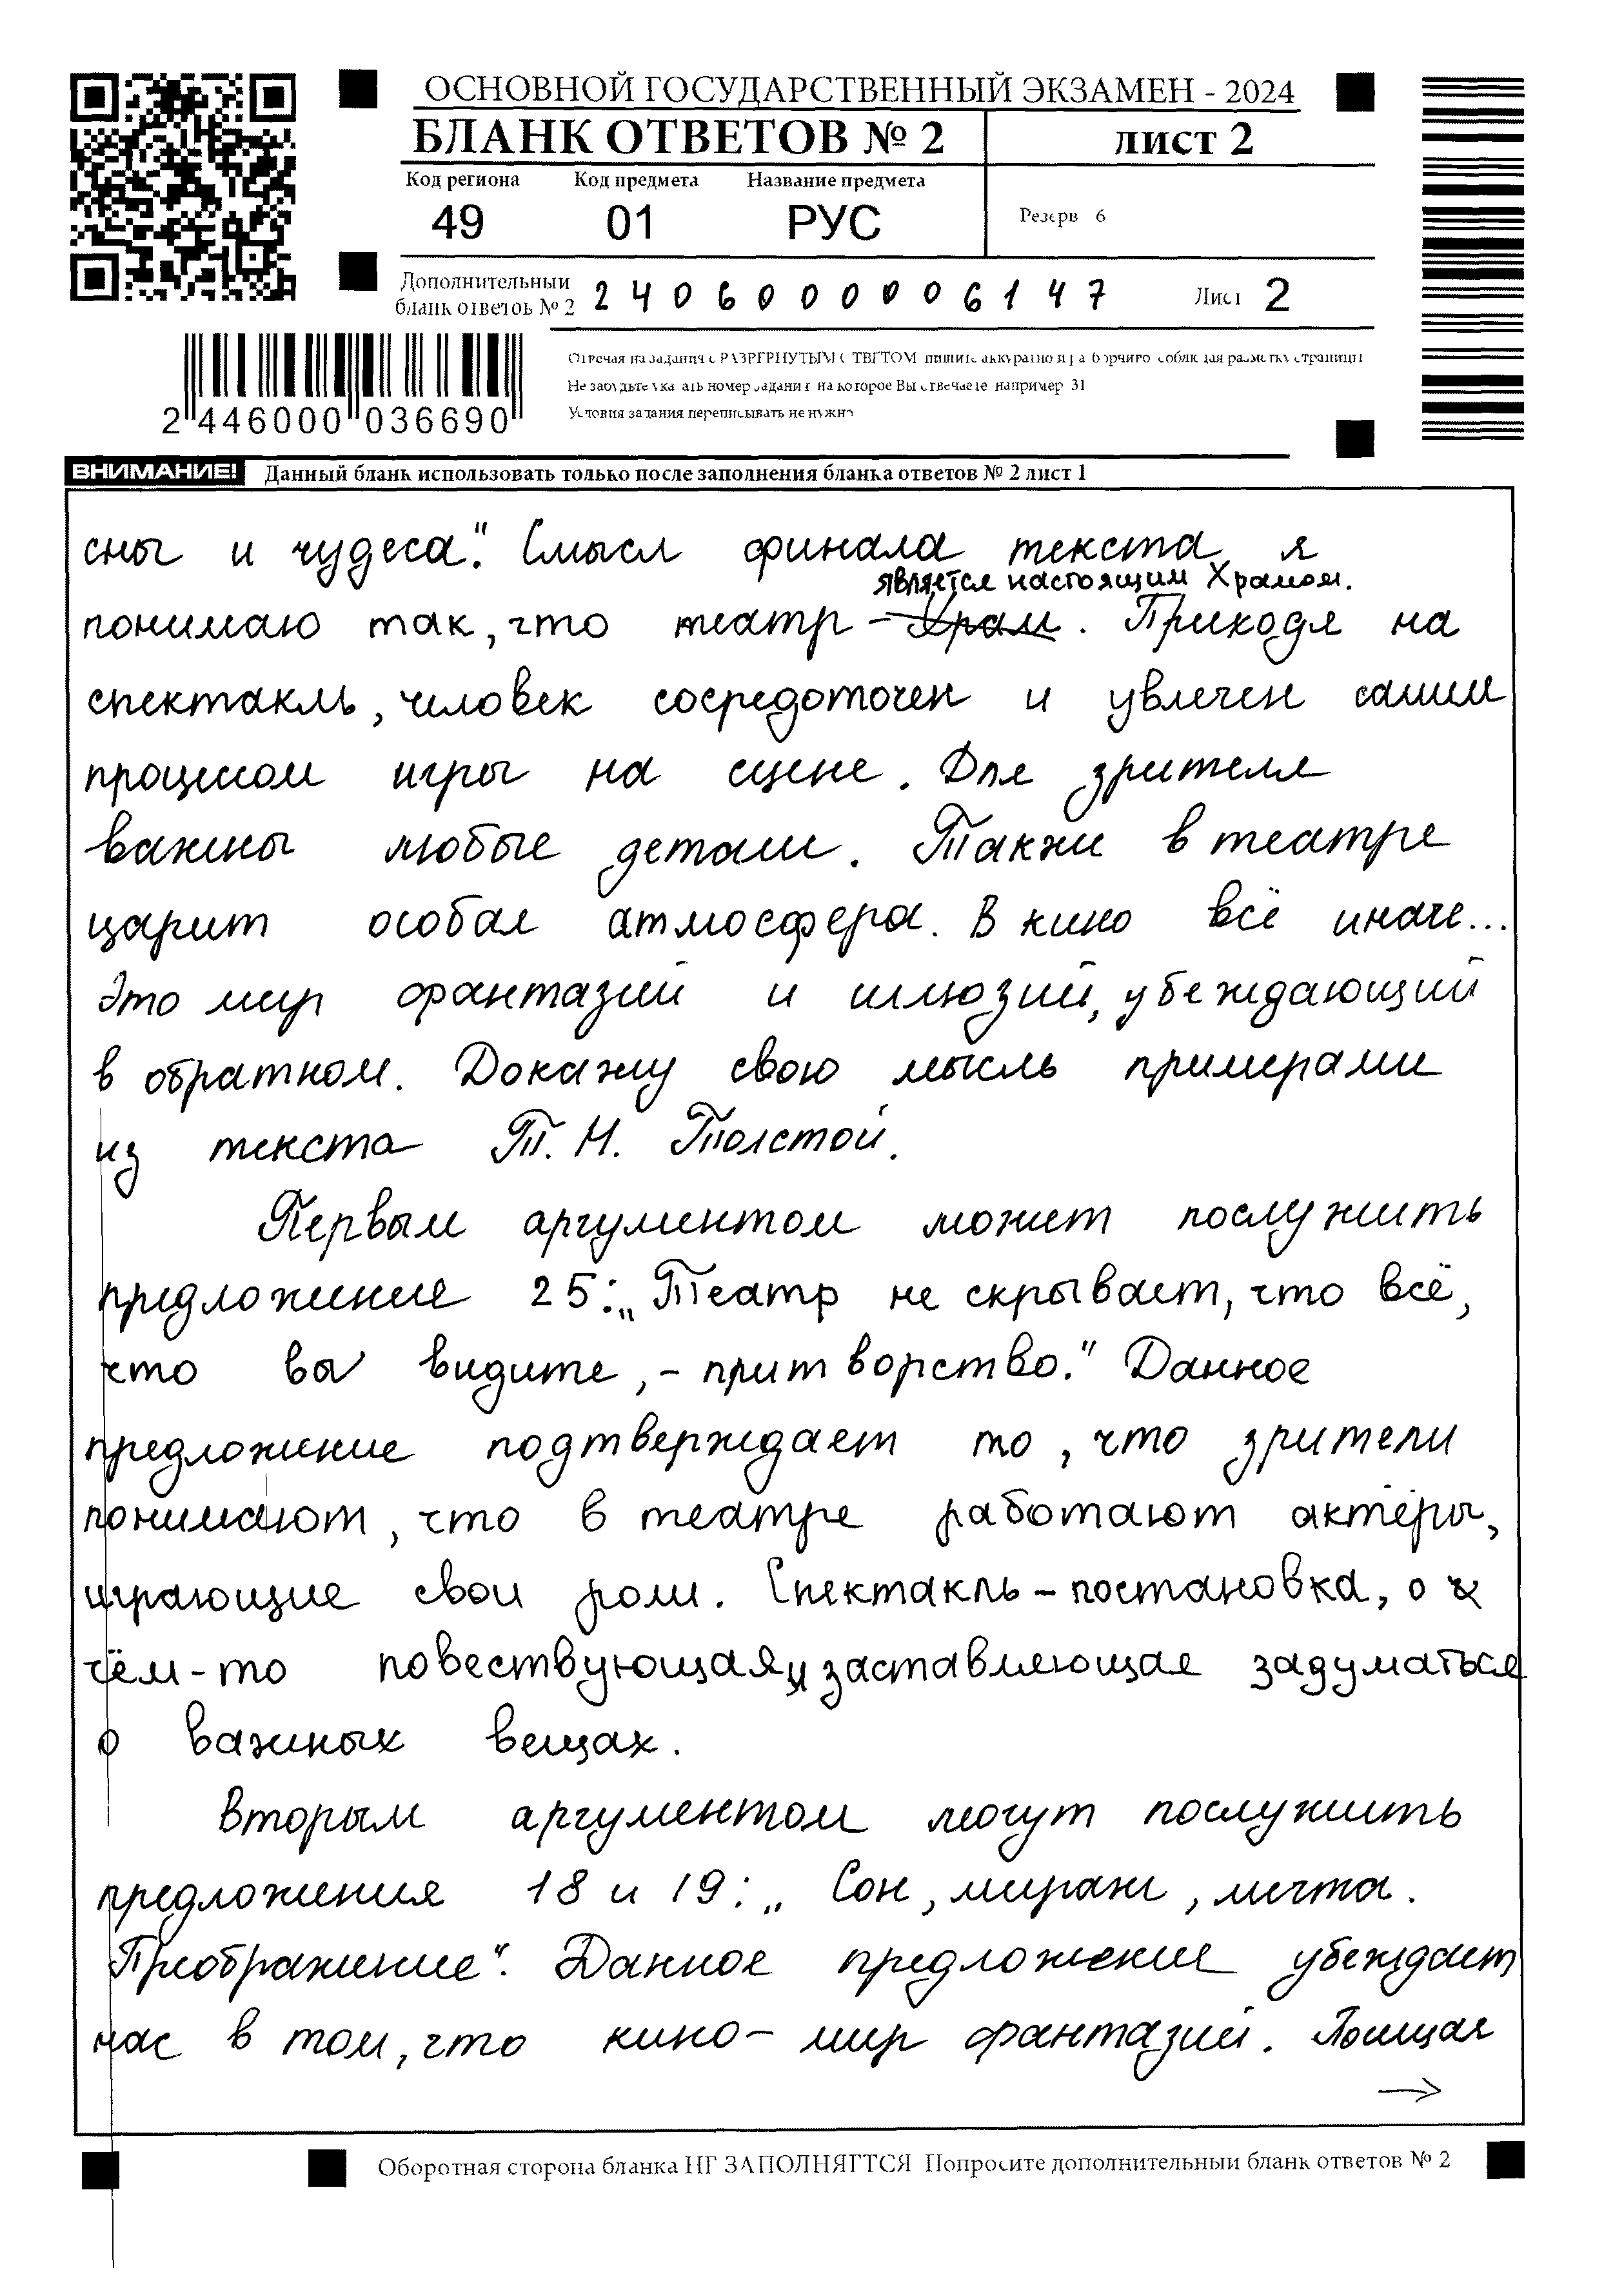 ОСНОВНОЙ ГОСУДАРСТВЕННЫЙ ЭКЗАМЕН - 2024
БЛАНК ОТВЕТОВ № 2 лист 2
Код региона Код предмета Название предмета
49 01 РУС Резерв 6
Дополнительный
бланк ответов № 2 2406000006147 Лист 2
Отвечая на задания с РАЗВЕРНУТЫМ ОТВЕТОМ, пишите аккуратно и разборчиво, соблюдая разметку страницы
Не забудьте указать номер задания, на которое Вы отвечаете, например 31
Условия задания переписывать не нужно
2 446000 036690
ВНИМАНИЕ! Данный бланк использовать только после заполнения бланка ответов № 2 лист 1
сны и чудеса". Смысл финала текста я
является настоящим Храмом.
понимаю так, что театр - Храм. Приходя на
спектакль, человек сосредоточен и увлечен самим
процессом игры на сцене. Для зрителя
важны любые детали. Также в театре
царит особая атмосфера. В кино всё иначе...
Это мир фантазий и иллюзий, убеждающий
в обратном. Докажу свою мысль примерами
из текста Т. Н. Толстой.
Первым аргументом может послужить
предложение 25: „Театр не скрывает, что всё,
что вы видите, - притворство." Данное
предложение подтверждает то, что зрители
понимают, что в театре работают актёры,
играющие свои роли. Спектакль - постановка, о
чём-то повествующая и заставляющая задуматься
о важных вещах.
Вторым аргументом могут послужить
предложения 18 и 19: „Сон, мираж, мечта.
Преображение". Данное предложение убеждает
нас в том, что кино - мир фантазий. Посещая
Оборотная сторона бланка НЕ ЗАПОЛНЯЕТСЯ Попросите дополнительный бланк ответов № 2